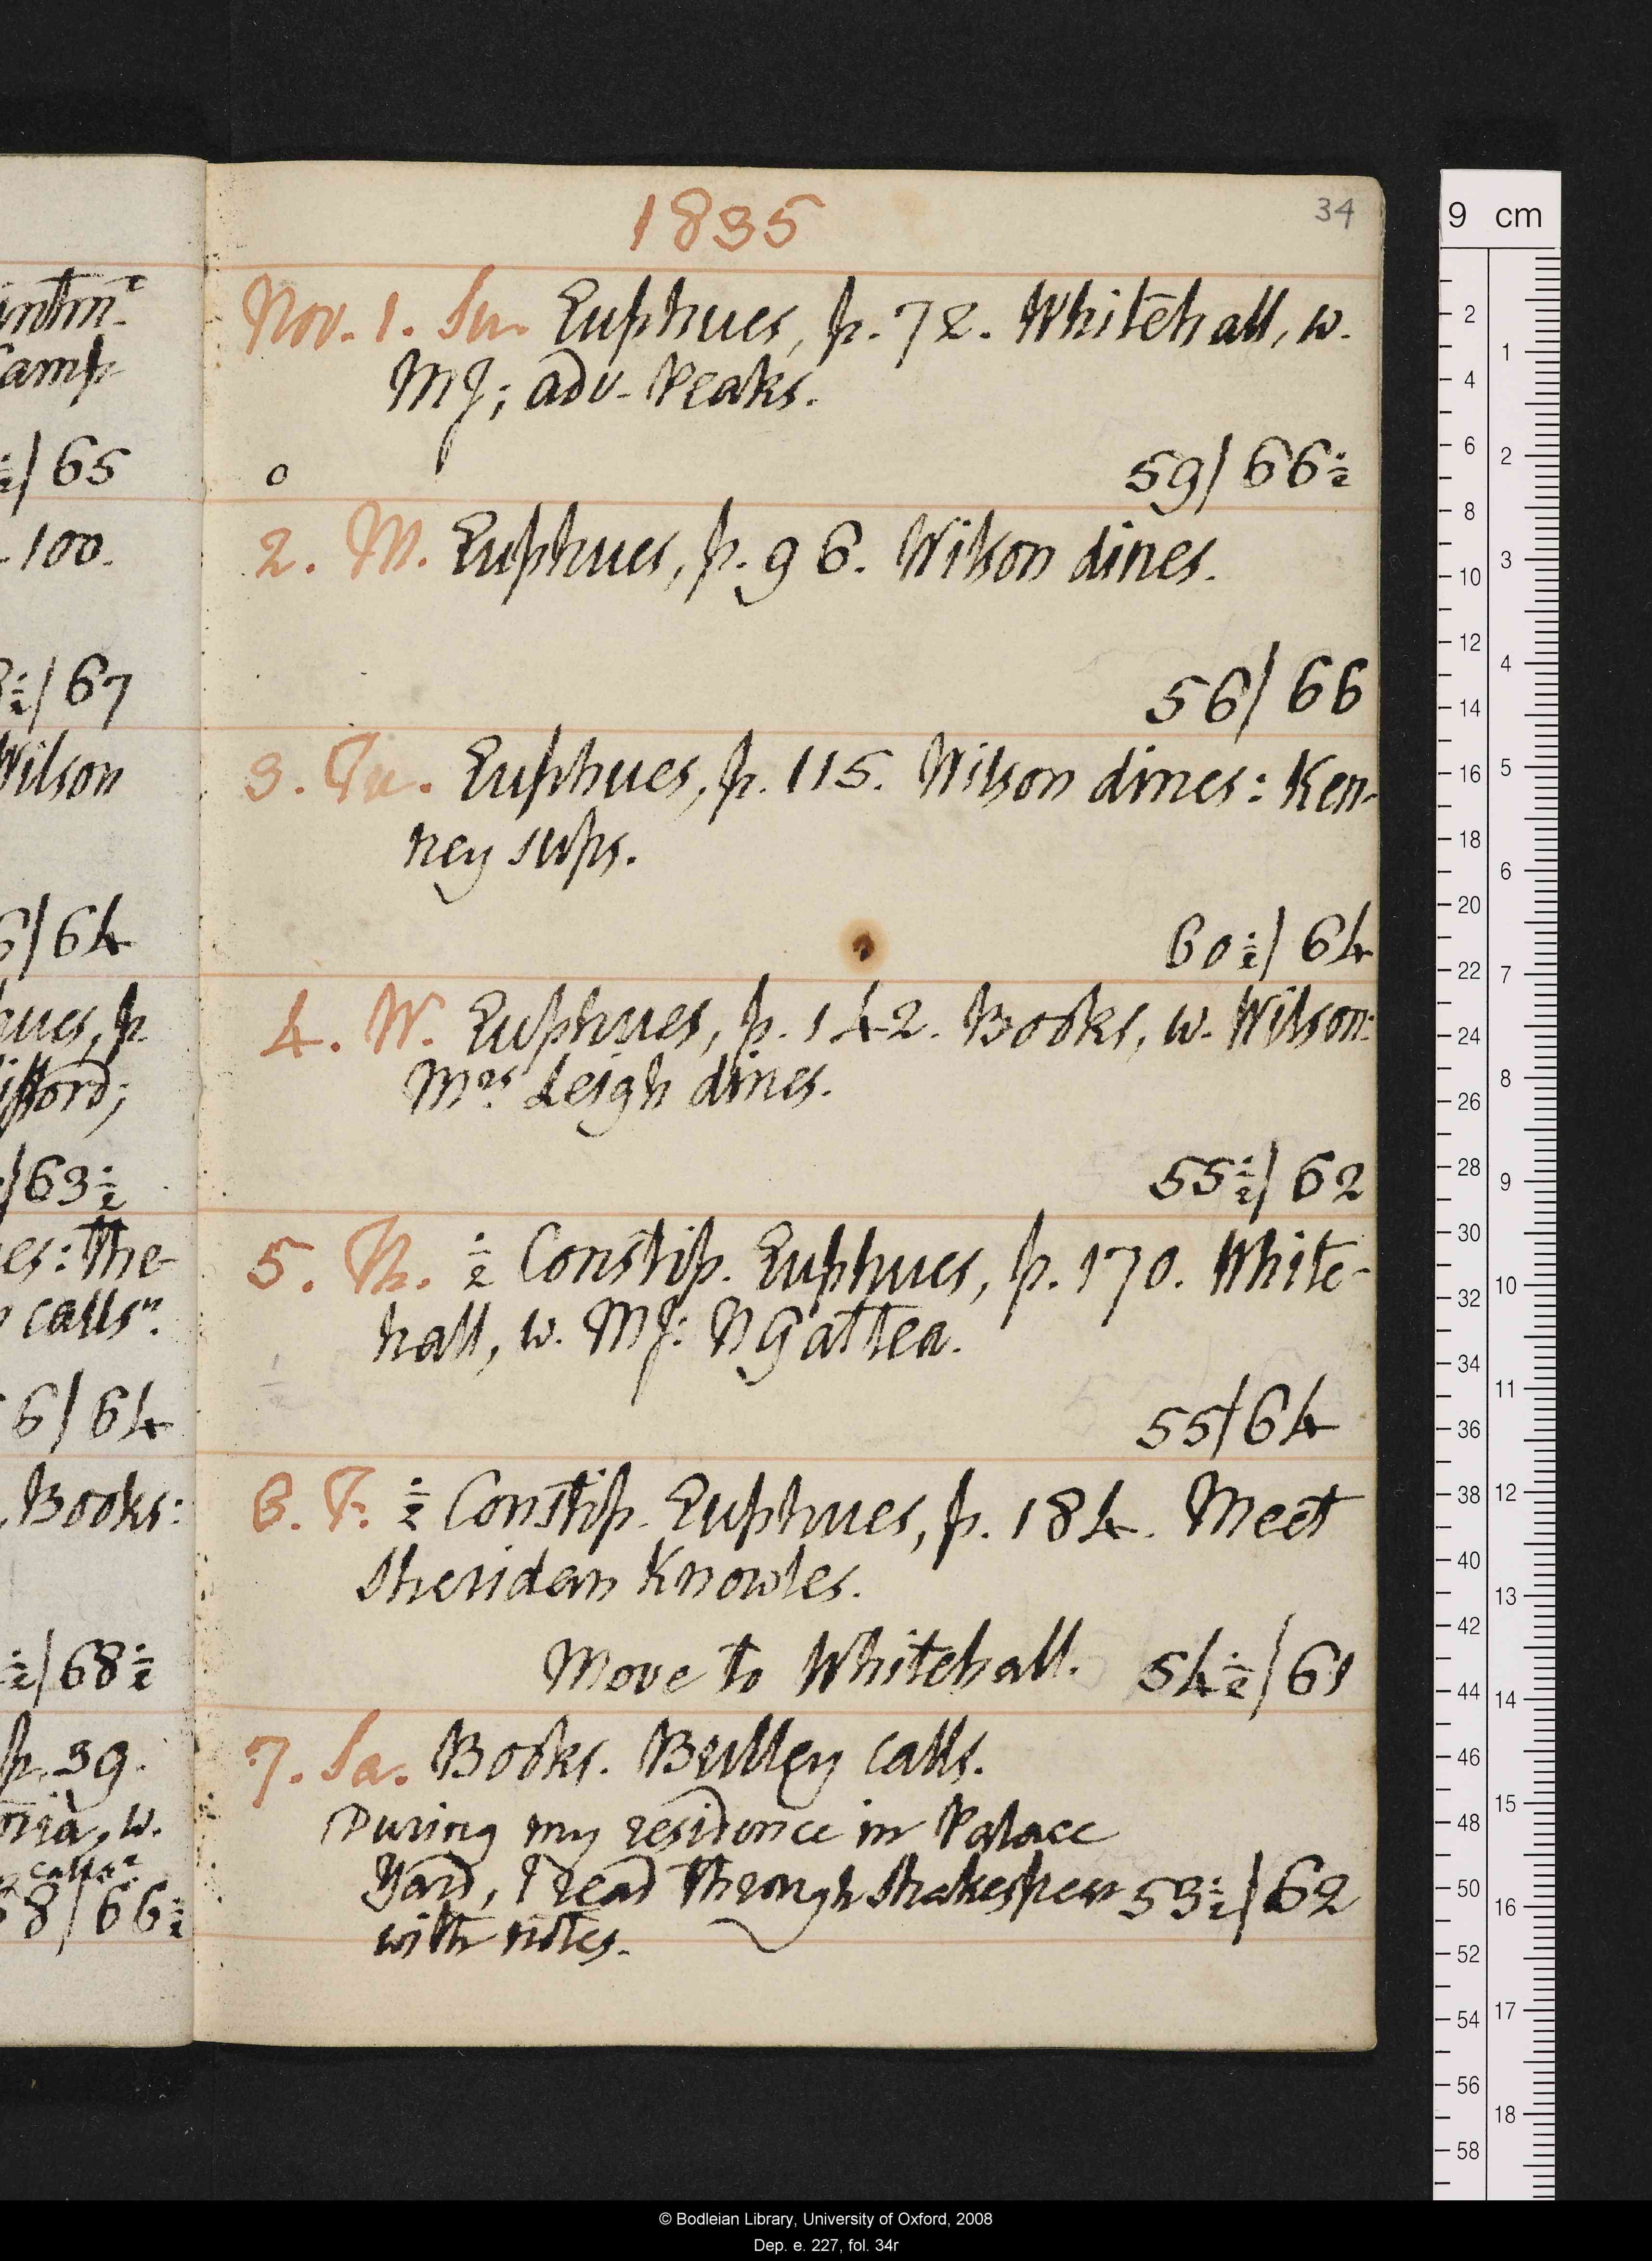 intmt
Camp
½/65
-100.
8½/67
Wilson
6/64
hues, p.
ifford;
/63½
es: The-
calls n.
6/64
Books:
½/68½
p. 39.
oria, w.
58/66½
1835
34
Nov. 1. Su. Euphues, p. 72. Whitehall, w.
MJ; adv. Peaks.
0
59/66½
2. M. Euphues, p. 96. Wilson dines.
56/66
3. Tu. Euphues, p. 115. Wilson dines: Ken-
ney sups.
60½/64
4. W. Euphues, p. 142. Books, w. Wilson:
Mrs Leigh dines.
55½/62
5. Th. ½ Constip. Euphues, p. 170. White-
hall, w. MJ: NG at tea.
½
55/64
6. F. ½ Constip. Euphues, p. 184. Meet
Sheridan Knowles.
Move to Whitehall. 54½/61
7. Sa. Books. Bulley calls.
During my residence in Palace
Yard, I read through Shakespear 53½/62
with notes.
9 cm
2
4
6
8
10
12
14
16
18
20
22
24
26
28
30
32
34
36
38
40
42
44
46
48
50
52
54
56
58
1
2
3
4
5
6
7
8
9
10
11
12
13
14
15
16
17
18
© Bodleian Library, University of Oxford, 2008
Dep. e. 227, fol. 34r